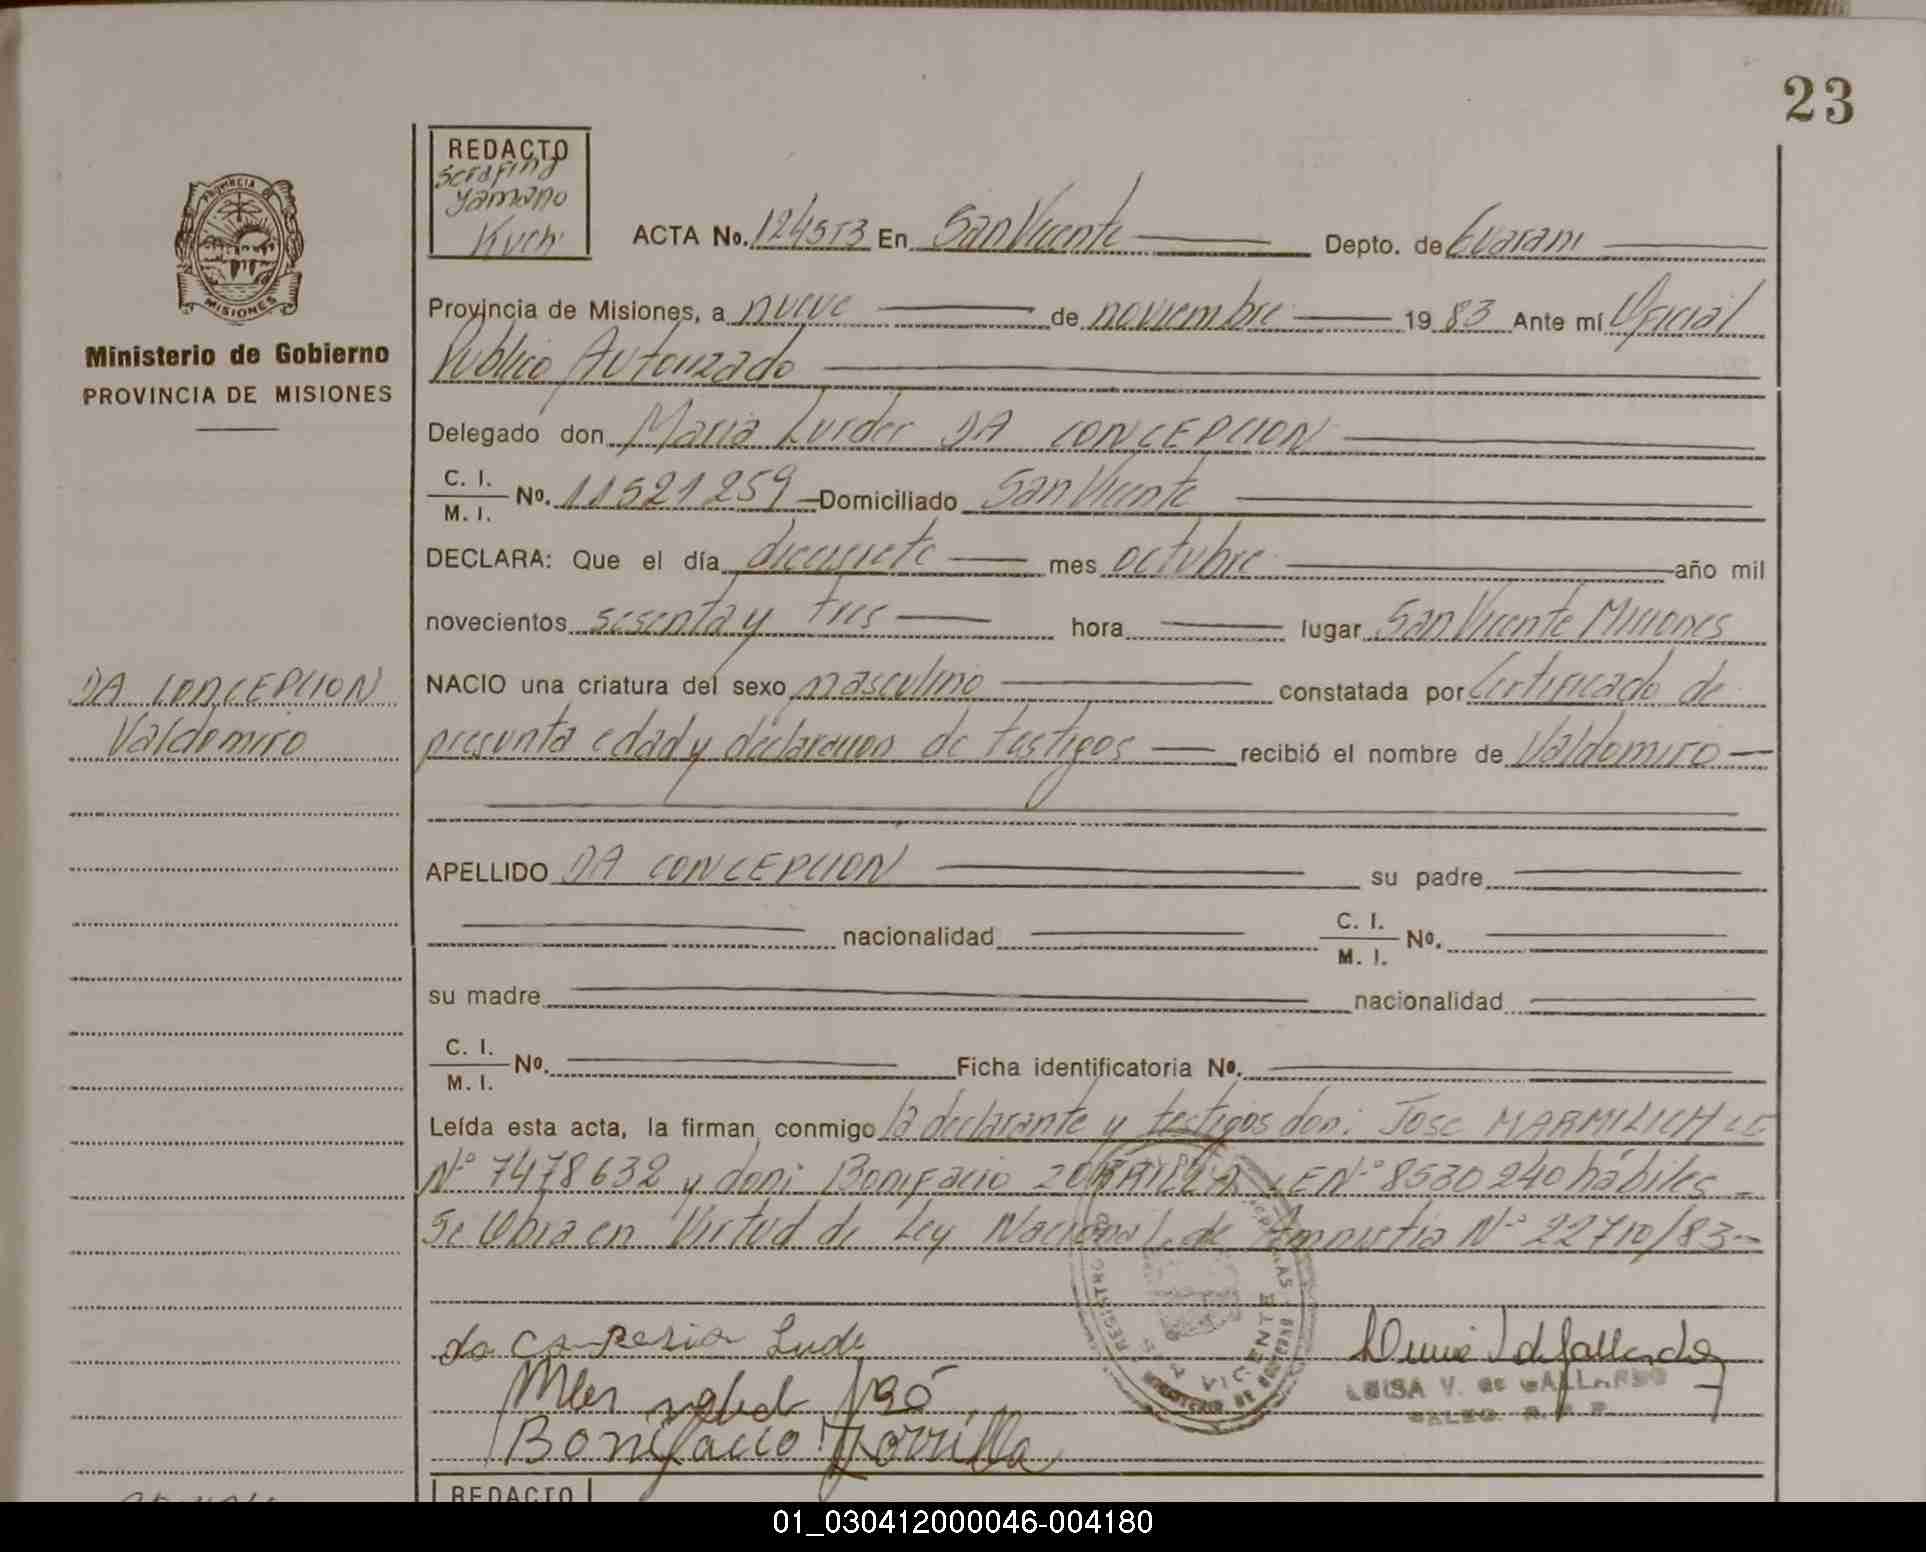 23
REDACTO
Serafina
Yamano
Kuch
ACTA No. 124553 En San Vicente Depto. de Guarani
Provincia de Misiones, a nueve de noviembre 1983 Ante mí Oficial
Publico Autorizado
Delegado don Maria Lurdes DA CONCEPCION
C. I.
M. I. No. 11521259 Domiciliado San Vicente
DECLARA: Que el día diecisiete mes octubre año mil
novecientos sesenta y tres hora lugar San Vicente Misiones
NACIO una criatura del sexo masculino constatada por Certificado de
presunta edad y declaracion de testigos recibió el nombre de Valdomiro
APELLIDO DA CONCEPCION su padre
nacionalidad C. I.
M. I. No.
su madre nacionalidad
C. I.
M. I. No. Ficha identificatoria No.
Leída esta acta, la firman conmigo la declarante y testigos don: Jose MARMILICH LE
Nº 7478632 y don: Bonifacio ZORRILLA LE Nº 8530240 hábiles
Se labra en Virtud de Ley Nacional de Amnistia Nº 22710/83
Bonifacio Zorrilla
LUISA V. de GALLARDO
REGISTRO
SAN VICENTE
MINISTERIO DE GOBIERNO
PROVINCIA DE
MISIONES
Ministerio de Gobierno
PROVINCIA DE MISIONES
DA CONCEPCION
Valdomiro
REDACTO
01_030412000046-004180